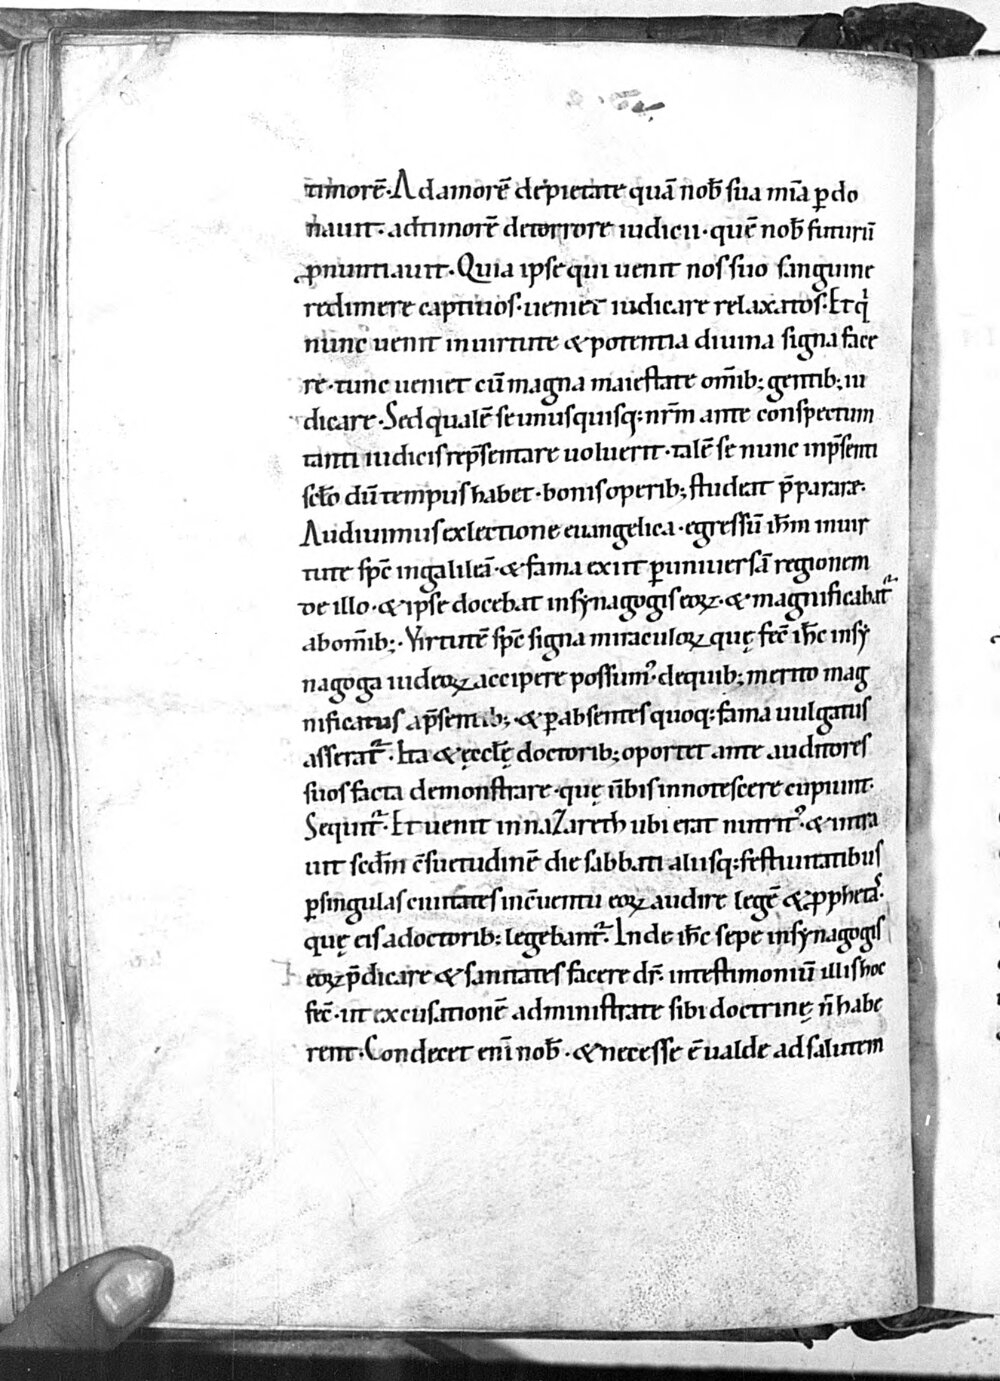 timorē· Ad amorē de pietate quā nob̄ sua mīa ꝑdo
nauit· ad timorē de torrore iudicii· quē nob̄ futurū
ꝓnuntiauit· Quia ipse qui uenit nos suo sanguine
redimere captiuos· ueniet iudicare relaxatos· Et qͥ
nunc uenit in uirtute & potentia diuina signa face
re· tunc ueniet cū magna maiestate om̄ib; gentib; iu
dicare· Sed qualē se unusquisq; nr̄m ante conspectum
tanti iudicis rep̄sentare uoluerit· talē se nunc in p̄senti
sc̄lo dū tempus habet· bonis operib; studeat p̄parare·
Audiuimus ex lectione euangelica· egressū ih̄m in uir
tute sp̄c in galileā· & fama exiit ꝑ uniuersā regionem
de illo· & ipse docebat in synagogis eoꝝ· & magnificabat᷑
ab om̄ib;· Virtutē sp̄c signa miraculoꝝ quę fec̄ ih̄c in sy
nagoga iudeoꝝ accipere possumꝰ· de quib; merito mag
nificatus a p̄sentib; & ꝑ absentes quoq; fama uulgatus
asserat᷑· Ita & ęcclę̄ doctorib; oportet ante auditores
suos facta demonstrare· quę ūbis innotescere cupiunt·
Sequit᷑· Et uenit in nazareth ubi erat nutritꝰ· & intra
uit sed̄m c̄suetudinē die sabbati aliisq; festiuitatibus
ꝑ singulas ciuitates in c̄uentu eoꝝ audire legē & ꝓphetas·
quę eis a doctorib; legebant᷑· Inde ih̄c sepe in synagogis
eoꝝ p̄dicare & sanitates facere dr̄· in testimoniū illis hoc
fec̄· ut excusationē administrate sibi doctrinę n̄ habe
rent· Condecet enī nob̄· & necesse ē ualde ad salutem